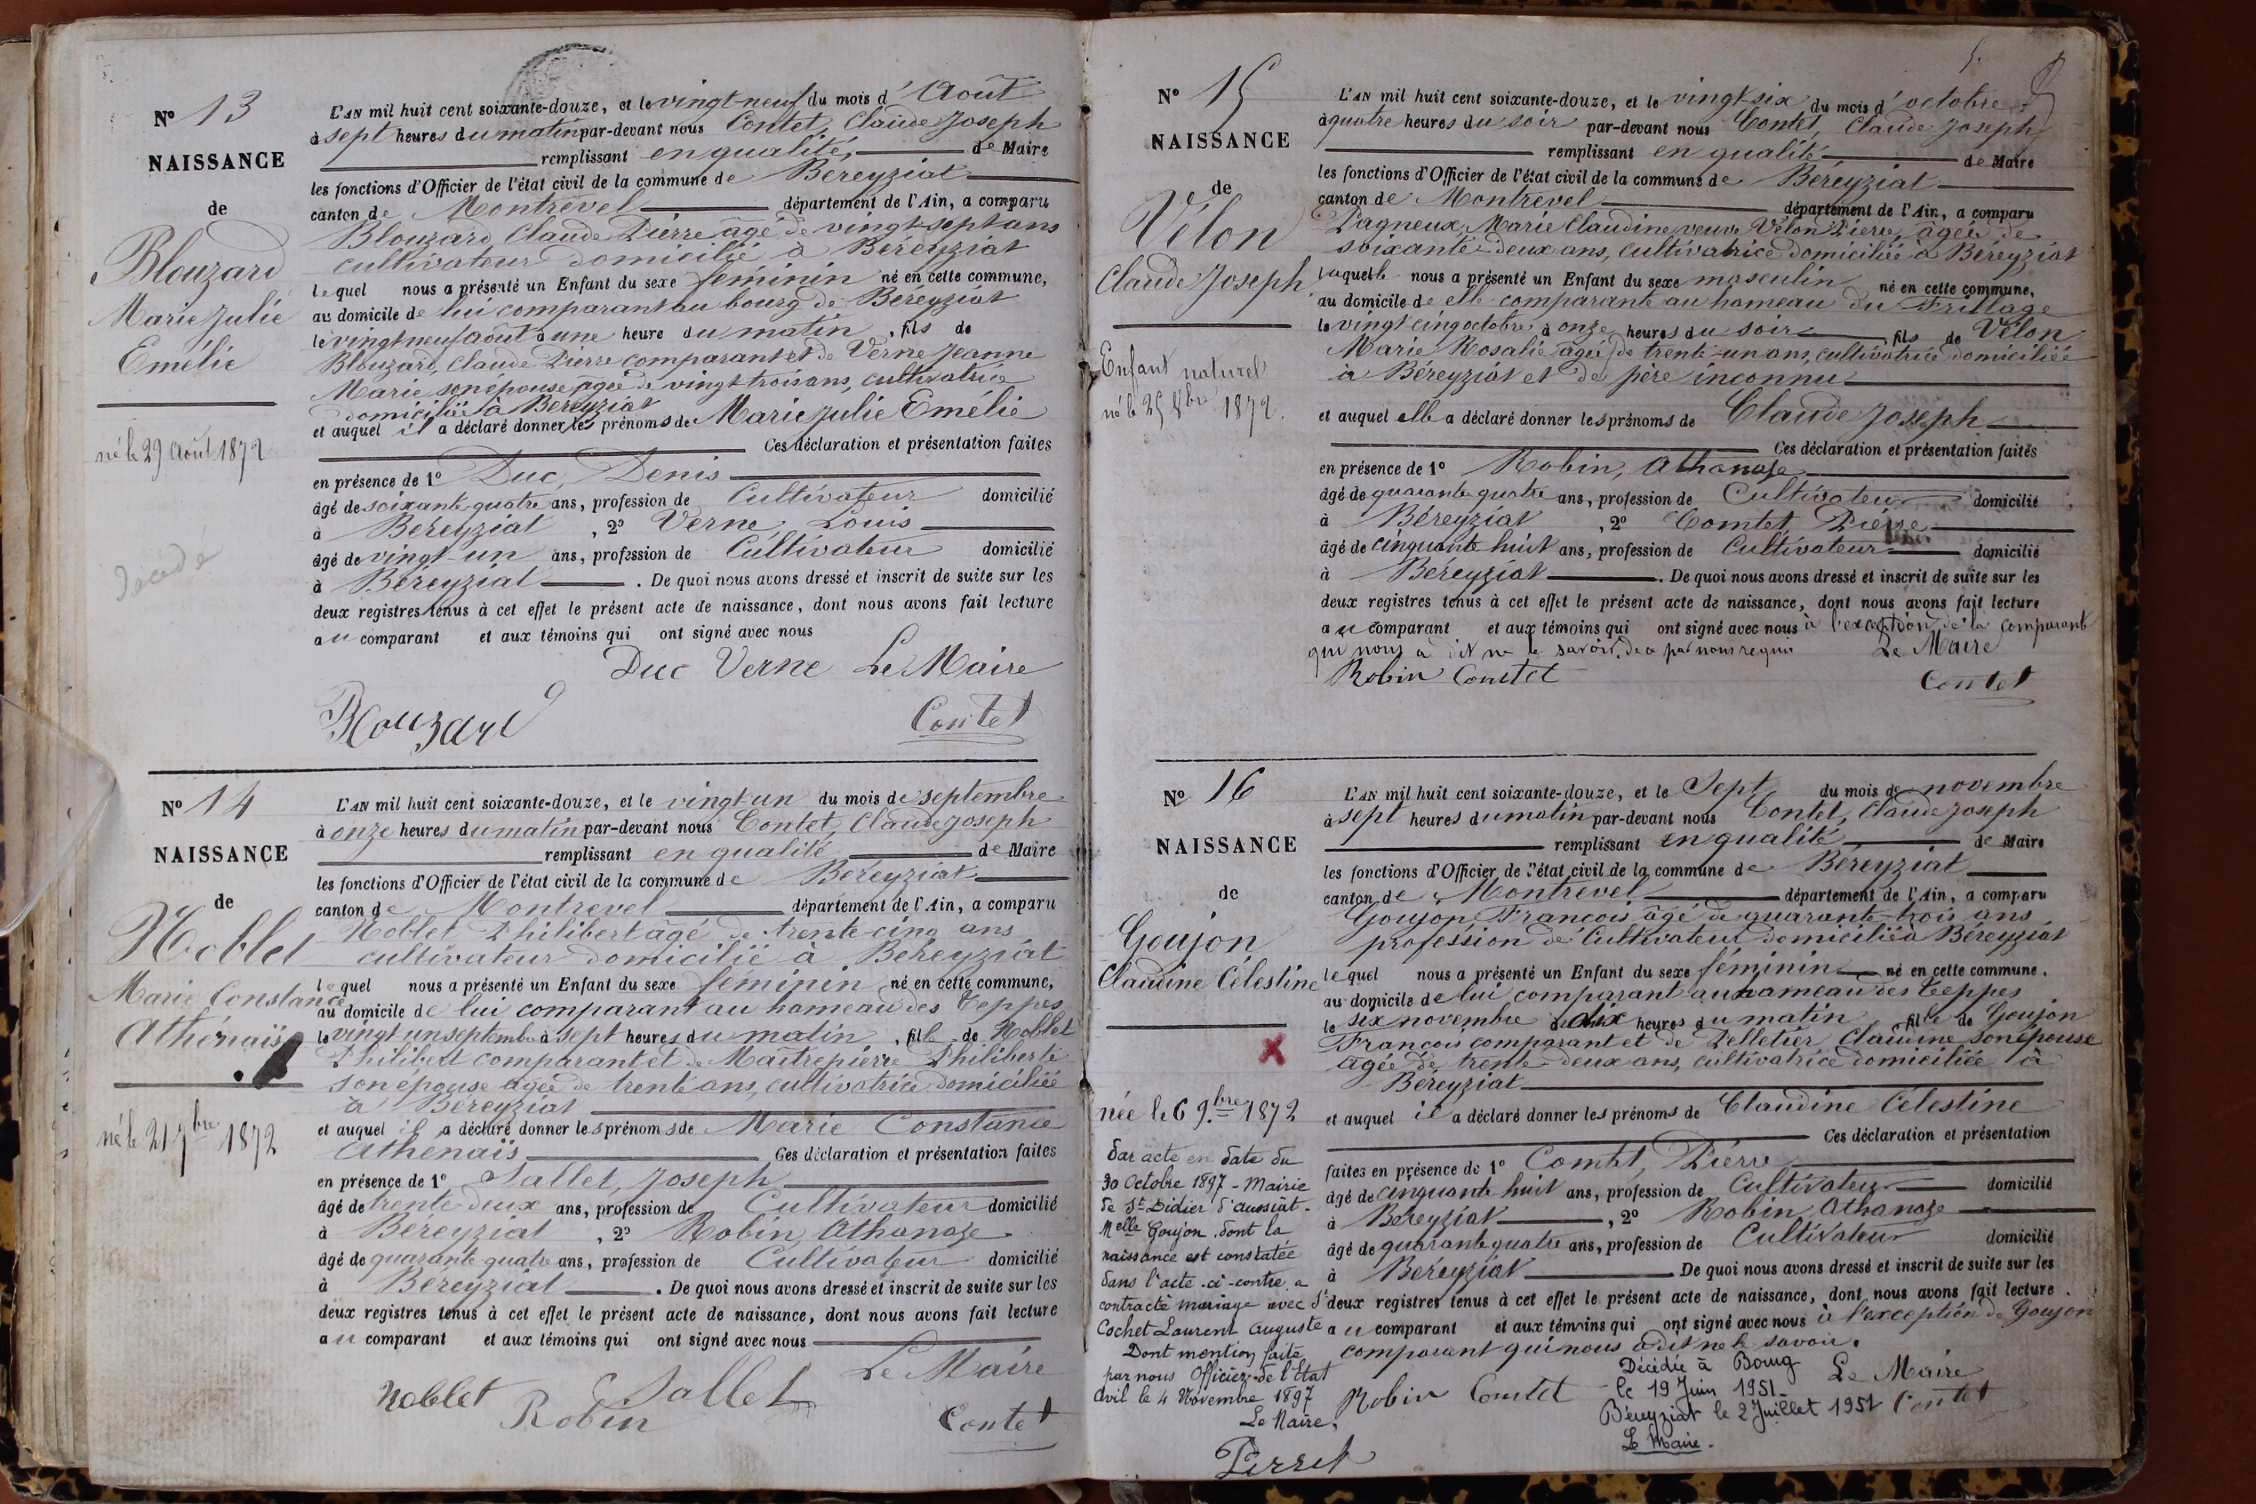 Nº 13
NAISSANCE
de
Blouzard
Marie Julie
Emélie
né le 29 août 1872
décédé
L'AN mil huit cent soixante-douze, et le vingt-neuf du mois d'Août
à sept heures du matin par-devant nous Contet, Claude Joseph
remplissant en qualité, de Maire
les fonctions d'Officier de l'état civil de la commune de Béréyziat
canton de Montrevel département de l'Ain, a comparu
Blouzard, Claude Pierre âgé de vingt-sept ans
cultivateur domicilié à Béréyziat
lequel nous a présenté un Enfant du sexe féminin né en cette commune,
au domicile de lui comparant au bourg de Béréyziat
le vingt neuf août à une heure du matin, fils de
Blouzard, Claude Pierre comparant et de Verne Jeanne
Marie son épouse âgée de vingt trois ans, cultivatrice
domiciliée à Béréyziat
et auquel il a déclaré donner les prénoms de Marie Julie Emélie
Ces déclaration et présentation faites
en présence de 1º Duc, Denis
âgé de soixante quatre ans, profession de Cultivateur domicilié
à Béréyziat, 2º Verne, Louis
âgé de vingt-un ans, profession de Cultivateur domicilié
à Béréyziat. De quoi nous avons dressé et inscrit de suite sur les
deux registres tenus à cet effet le présent acte de naissance, dont nous avons fait lecture
au comparant et aux témoins qui ont signé avec nous
Duc Verne Le Maire
Blouzard Contet
Nº 14
NAISSANCE
de
Noblet
Marie Constance
Athénaïs
né le 21 7bre 1872
L'AN mil huit cent soixante-douze, et le vingt-un du mois de septembre
à onze heures du matin par-devant nous Contet, Claude Joseph
remplissant en qualité de Maire
les fonctions d'Officier de l'état civil de la commune de Béréyziat
canton de Montrevel département de l'Ain, a comparu
Noblet Philibert âgé de trente-cinq ans
cultivateur domicilié à Béréyziat
lequel nous a présenté un Enfant du sexe féminin né en cette commune,
au domicile de lui comparant au hameau des Teppes
le vingt un septembre à sept heures du matin, fille de Noblet
Philibert comparant et de Maitrepierre Philiberte
son épouse âgée de trente ans, cultivatrice domiciliée
à Béréyziat
et auquel il a déclaré donner les prénoms de Marie Constance
Athenaïs Ces déclaration et présentation faites
en présence de 1º Sallet, Joseph
âgé de trente deux ans, profession de Cultivateur domicilié
à Béréyziat, 2º Robin Athanaze
âgé de quarante quatre ans, profession de Cultivateur domicilié
à Béréyziat. De quoi nous avons dressé et inscrit de suite sur les
deux registres tenus à cet effet le présent acte de naissance, dont nous avons fait lecture
au comparant et aux témoins qui ont signé avec nous
Le Maire
Noblet Sallet
Robin Contet
Nº 15
NAISSANCE
de
Vélon
Claude Joseph
Enfant naturel
né le 25 8bre 1872
L'AN mil huit cent soixante-douze, et le vingt-six du mois d'octobre
à quatre heures du soir par-devant nous Contet, Claude Joseph
remplissant en qualité de Maire
les fonctions d'Officier de l'état civil de la commune de Béréyziat
canton de Montrevel département de l'Ain, a comparu
Pagneux, Marie Claudine veuve Vélon Pierre, âgée de
soixante-deux ans, cultivatrice domiciliée à Béréyziat
laquelle nous a présenté un Enfant du sexe masculin né en cette commune,
au domicile de elle comparante au hameau du Frillage
le vingt-cinq octobre à onze heures du soir, fils de Vélon
Marie Rosalie âgée de trente-un ans, cultivatrice domiciliée
à Béréyziat et de père inconnu
et auquel elle a déclaré donner les prénoms de Claude Joseph
Ces déclaration et présentation faites
en présence de 1º Robin, Athanaze
âgé de quarante quatre ans, profession de Cultivateur domicilié
à Béréyziat, 2º Comtet, Pierre
âgé de cinquante huit ans, profession de Cultivateur domicilié
à Béréyziat. De quoi nous avons dressé et inscrit de suite sur les
deux registres tenus à cet effet le présent acte de naissance, dont nous avons fait lecture
au comparant et aux témoins qui ont signé avec nous à l'exception de la comparante
qui nous a dit ne le savoir, de ce par nous requis Le Maire
Robin Comtet Contet
Nº 16
NAISSANCE
de
Goujon
Claudine Célestine
née le 6 9.bre 1872
Par acte en date du
30 Octobre 1897 - Mairie
de St Didier d'Aussiat -
Melle Goujon dont la
naissance est constatée
dans l'acte ci-contre a
contracté mariage avec Sr
Cochet Laurent Auguste
Dont mention faite
par nous Officier de l'Etat
Civil le 4 Novembre 1897
Le Maire,
Perret
L'AN mil huit cent soixante-douze, et le Sept du mois de novembre
à sept heures du matin par-devant nous Contet, Claude Joseph
remplissant en qualité de Maire
les fonctions d'Officier de l'état civil de la commune de Béréyziat
canton de Montrevel département de l'Ain, a comparu
Goujon, François âgé de quarante-trois ans
profession de Cultivateur domicilié à Béréyziat
lequel nous a présenté un Enfant du sexe féminin né en cette commune.
au domicile de lui comparant au hameau des Teppes
le six novembre à dix heures du matin, fille de Goujon
François comparant et de Pelletier Claudine son épouse
âgée de trente-deux ans, cultivatrice domiciliée à
Béréyziat
et auquel il a déclaré donner les prénoms de Claudine Célestine
Ces déclaration et présentation
faites en présence de 1º Comtet, Pierre
âgé de cinquante huit ans, profession de Cultivateur domicilié
à Béréyziat, 2º Robin, Athanaze
âgé de quarante quatre ans, profession de Cultivateur domicilié
à Béréyziat De quoi nous avons dressé et inscrit de suite sur les
deux registres tenus à cet effet le présent acte de naissance, dont nous avons fait lecture.
au comparant et aux témoins qui ont signé avec nous à l'exception de Goujon
comparant qui nous a dit ne le savoir.
Décédée à Bourg Le Maire
le 19 Juin 1951-
Robin Comtet
Béreyziat le 2 Juillet 1951 Contet
Le Maire.